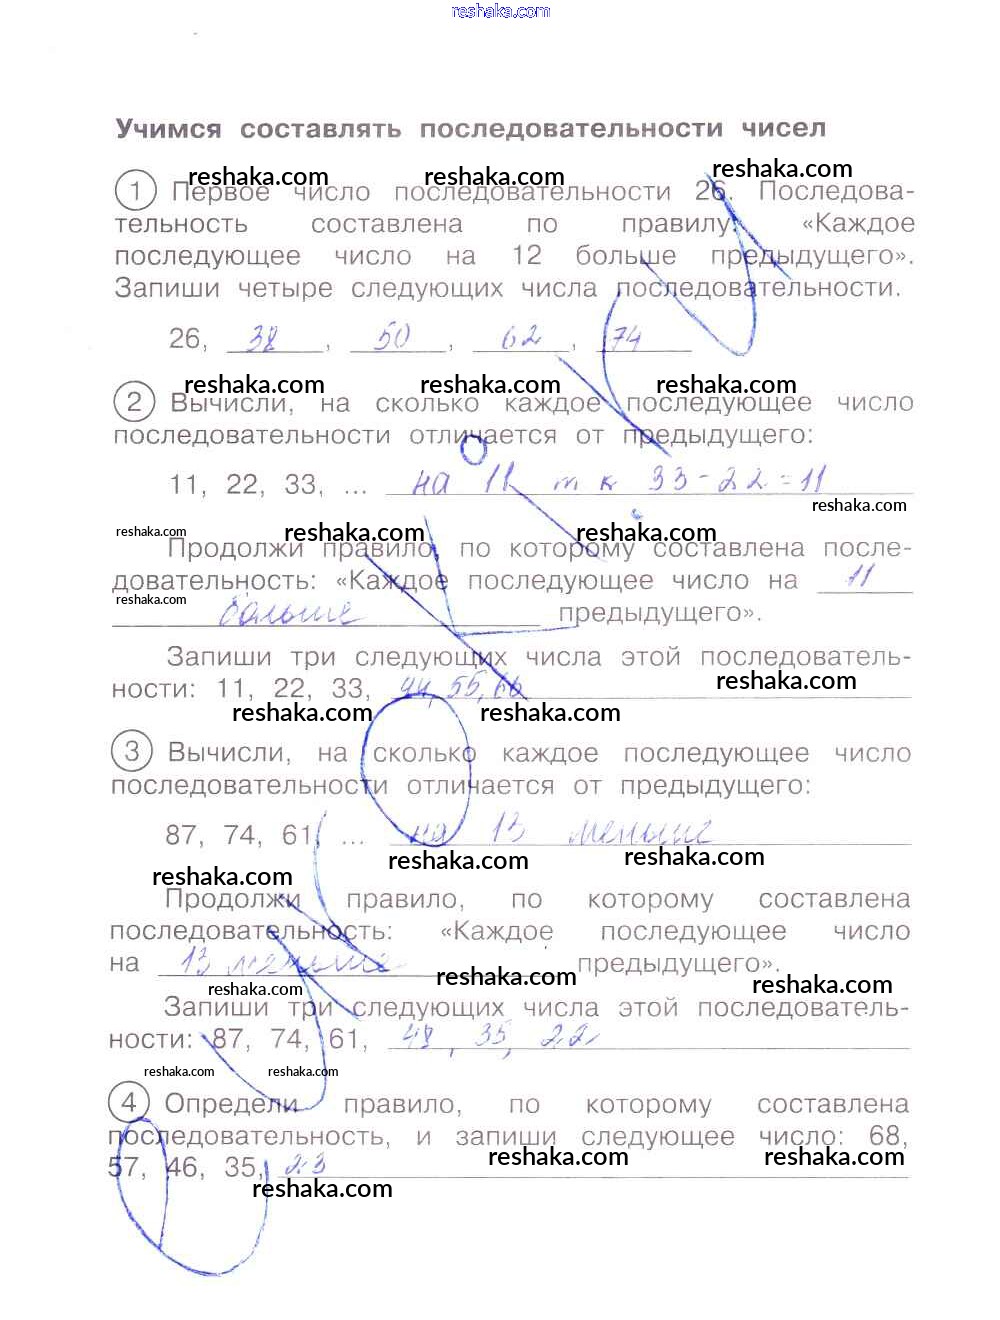 reshaka.com
Учимся составлять последовательности чисел
reshaka.com reshaka.com reshaka.com
1 Первое число последовательности 26. Последова-
тельность составлена по правилу: «Каждое
последующее число на 12 больше предыдущего».
Запиши четыре следующих числа последовательности.
26, 38, 50, 62, 74
reshaka.com reshaka.com reshaka.com
2 Вычисли, на сколько каждое последующее число
последовательности отличается от предыдущего:
11, 22, 33, ... на 11 т к 33-22=11
reshaka.com
reshaka.com reshaka.com reshaka.com
Продолжи правило, по которому составлена после-
довательность: «Каждое последующее число на 11
reshaka.com
больше предыдущего».
Запиши три следующих числа этой последователь-
ности: 11, 22, 33, 44, 55, 66
reshaka.com
reshaka.com reshaka.com
3 Вычисли, на сколько каждое последующее число
последовательности отличается от предыдущего:
87, 74, 61, ... на 13 меньше
reshaka.com reshaka.com reshaka.com
Продолжи правило, по которому составлена
последовательность: «Каждое последующее число
на 13 меньше предыдущего».
reshaka.com reshaka.com reshaka.com
Запиши три следующих числа этой последователь-
ности: 87, 74, 61, 48, 35, 22
reshaka.com reshaka.com
4 Определи правило, по которому составлена
последовательность, и запиши следующее число: 68,
reshaka.com reshaka.com
57, 46, 35, 23
reshaka.com